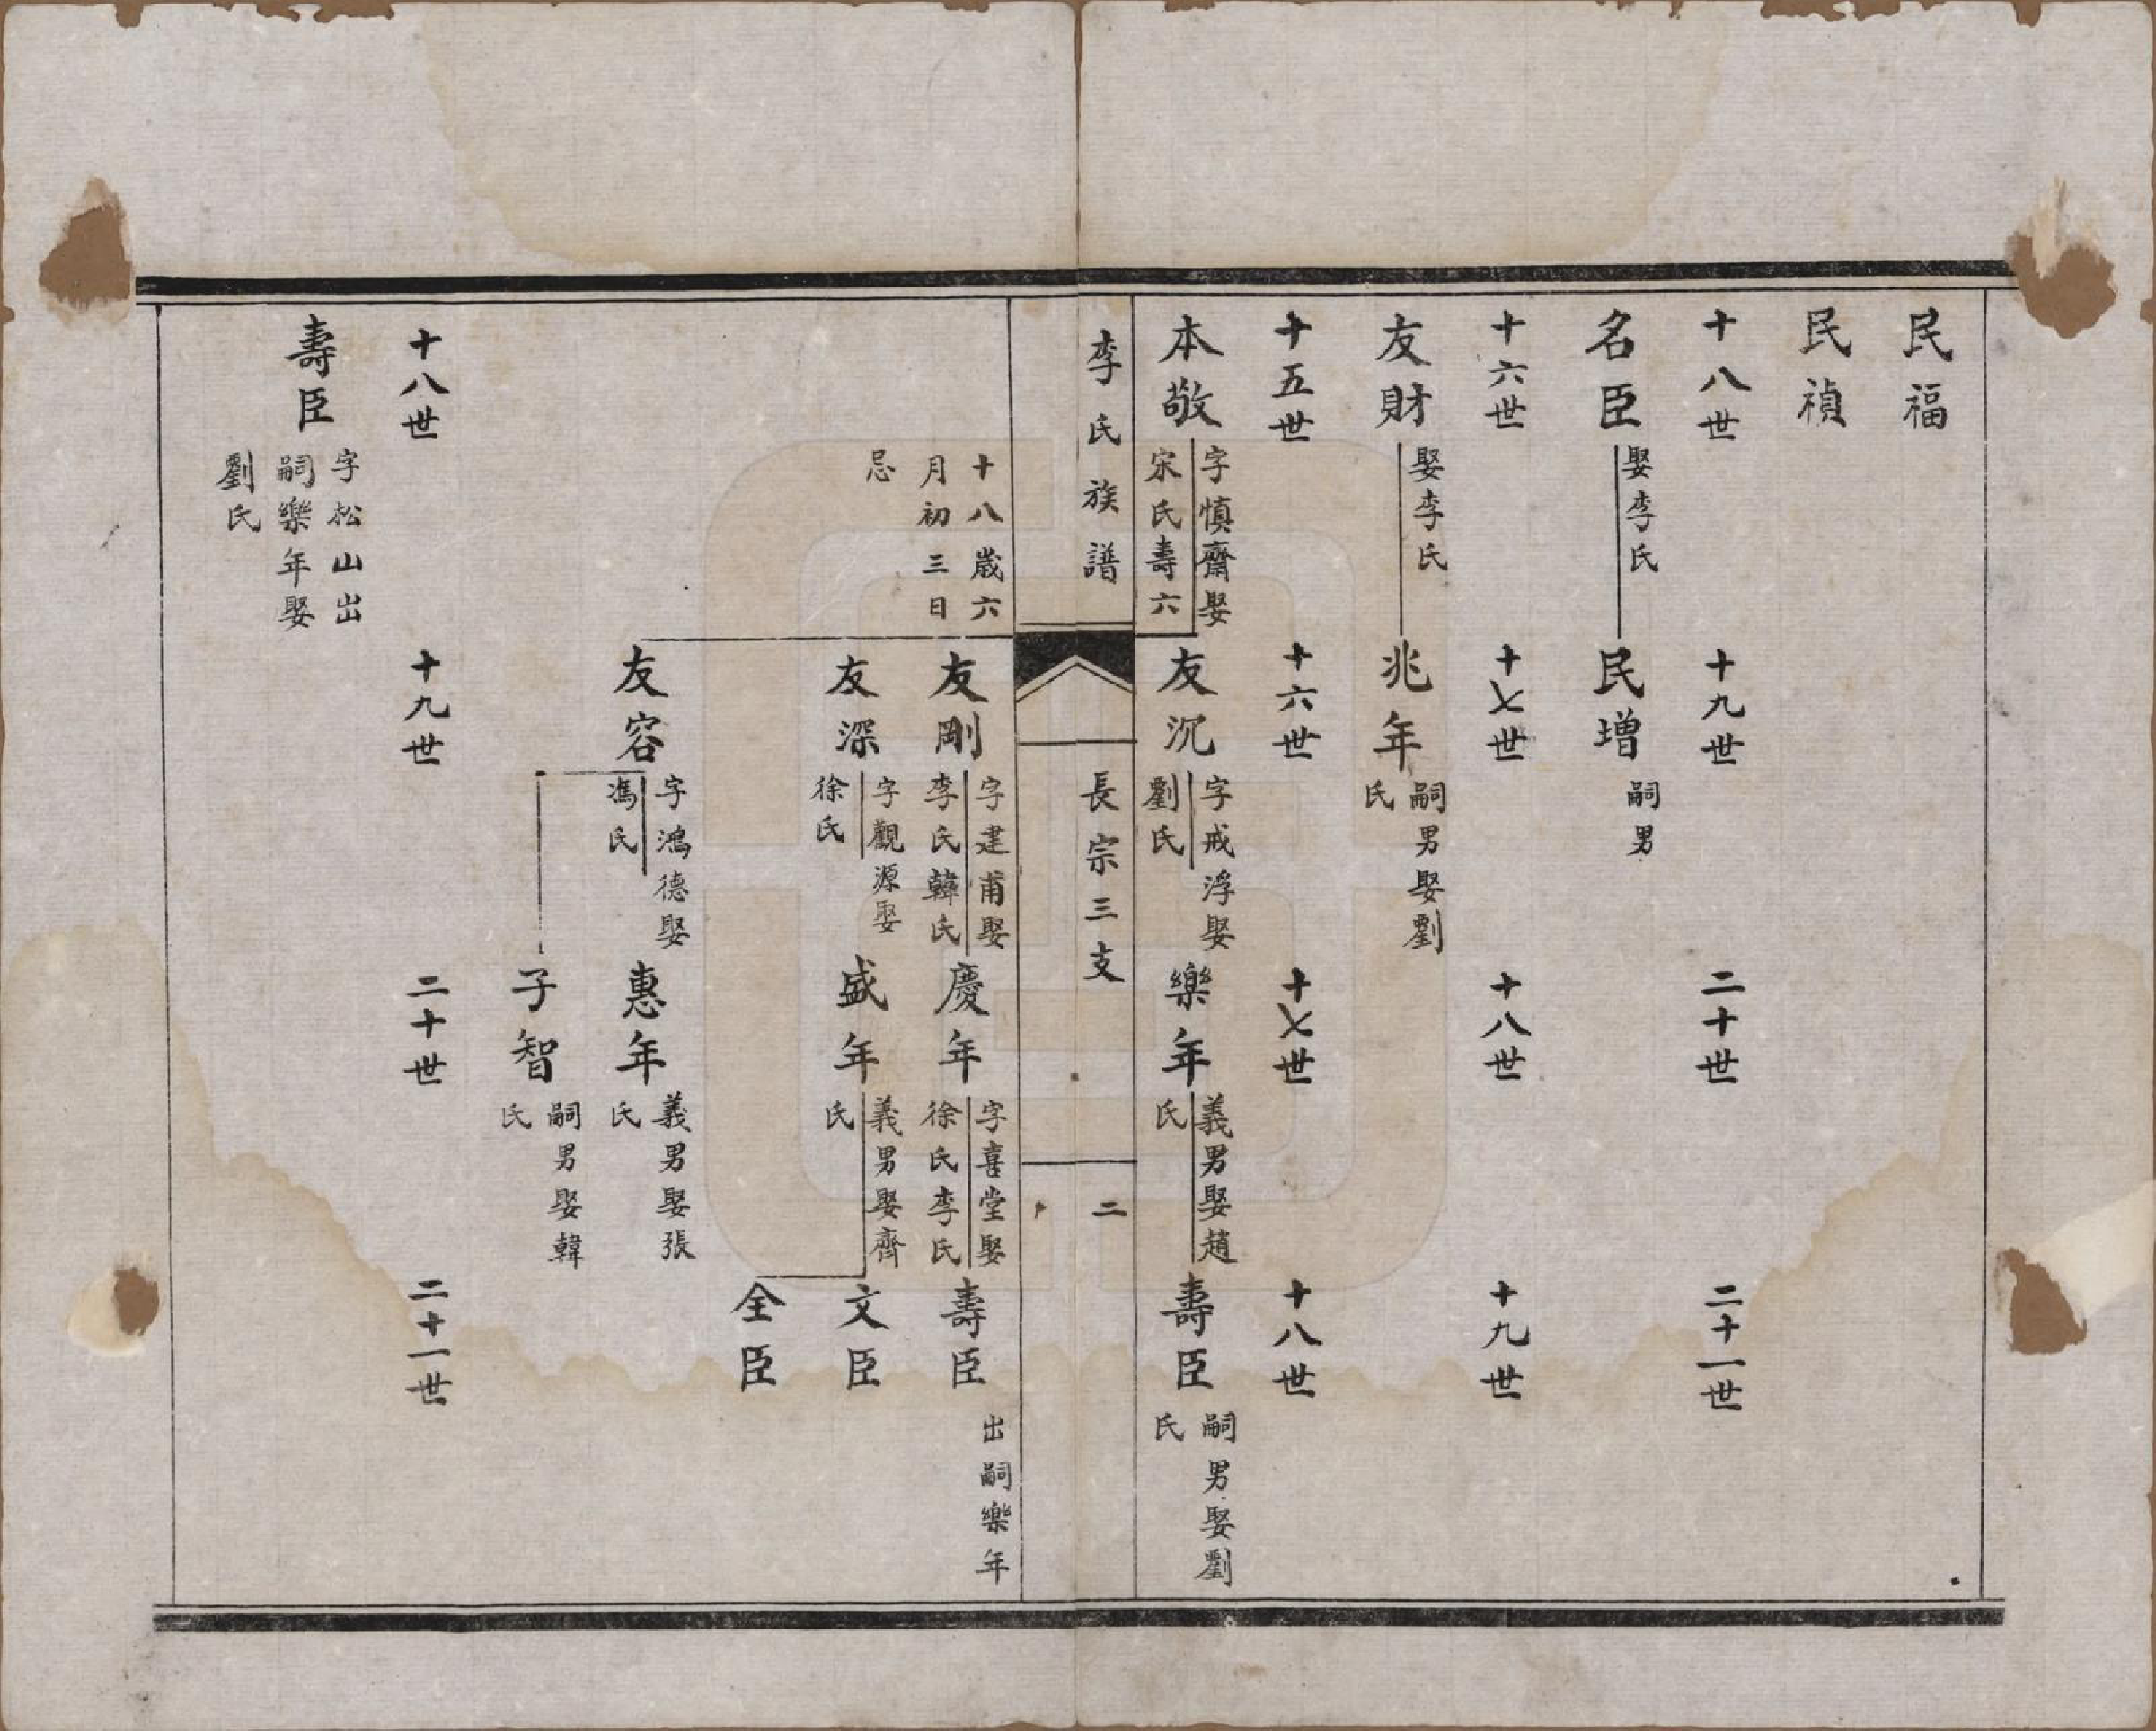 民福
民禎
十八世
十九世
二十世
二十一世
名臣
娶李氏
民增
嗣男
十六世
十七世
十八世
十九世
友財
娶李氏
兆年
嗣男娶劉
氏
十五世
十六世
十七世
十八世
本敬
字慎齋娶
宋氏壽六
友沉
字戒浮娶
劉氏
樂年
義男娶趙
氏
壽臣
嗣男娶劉
氏
李氏族譜
長宗三支
二
十八歲六
月初三日
忌
友剛
字建甫娶
李氏韓氏
慶年
字喜堂娶
徐氏李氏
壽臣
出嗣樂年
友深
字觀源娶
徐氏
盛年
義男娶齊
氏
文臣
全臣
友容
字鴻德娶
馮氏
惠年
義男娶張
氏
子智
嗣男娶韓
氏
十八世
十九世
二十世
二十一世
壽臣
字松山出
嗣樂年娶
劉氏